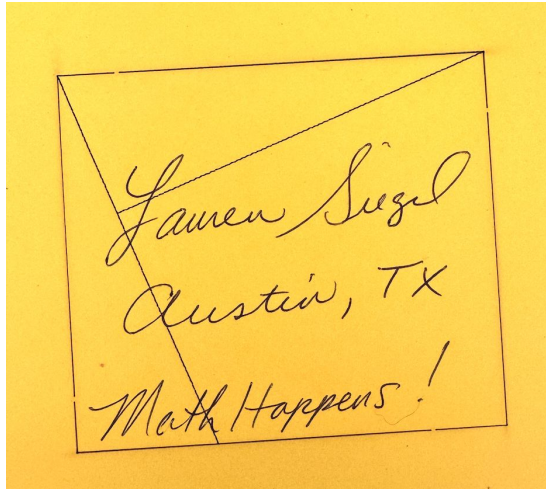 Lauren Siegel
Austin, TX
Math Happens!